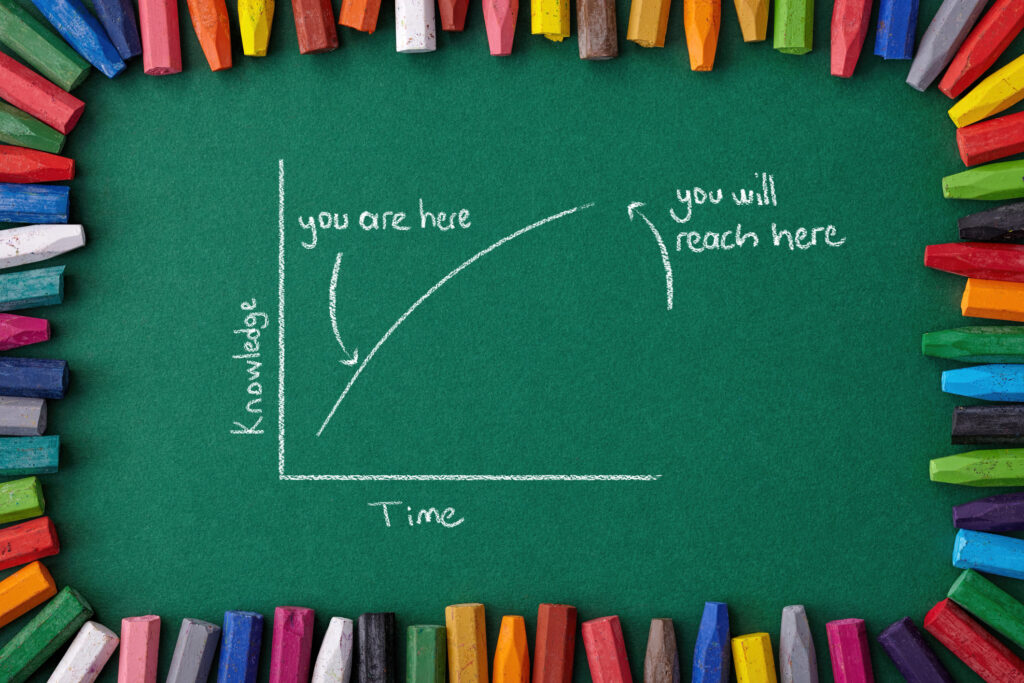 you are here
you will
reach here
Knowledge
Time